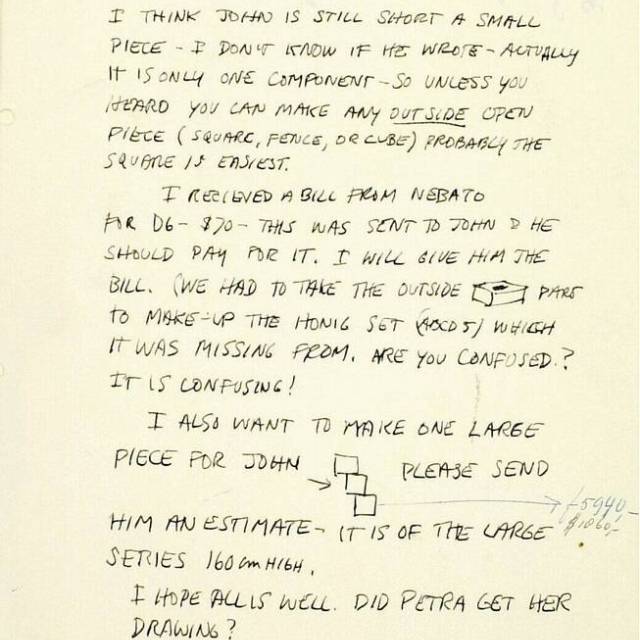 I THINK JOHN IS STILL SHORT A SMALL
PIECE - I DON'T KNOW IF HE WROTE - ACTUALLY
IT IS ONLY ONE COMPONENT - SO UNLESS YOU
HEARD YOU CAN MAKE ANY OUTSIDE OPEN
PIECE (SQUARE, FENCE, OR CUBE) PROBABLY THE
SQUARE IS EASIEST.
I RECIEVED A BILL FROM NEBATO
FOR D6 - $70 - THIS WAS SENT TO JOHN & HE
SHOULD PAY FOR IT. I WILL GIVE HIM THE
BILL. (WE HAD TO TAKE THE OUTSIDE PART
TO MAKE-UP THE HONIG SET (ABCD5) WHICH
IT WAS MISSING FROM. ARE YOU CONFUSED.?
IT IS CONFUSING!
I ALSO WANT TO MAKE ONE LARGE
PIECE FOR JOHN PLEASE SEND
f 5940,-
$1060,-
HIM AN ESTIMATE - IT IS OF THE LARGE
SERIES 160 cm HIGH.
I HOPE ALL IS WELL. DID PETRA GET HER
DRAWING?